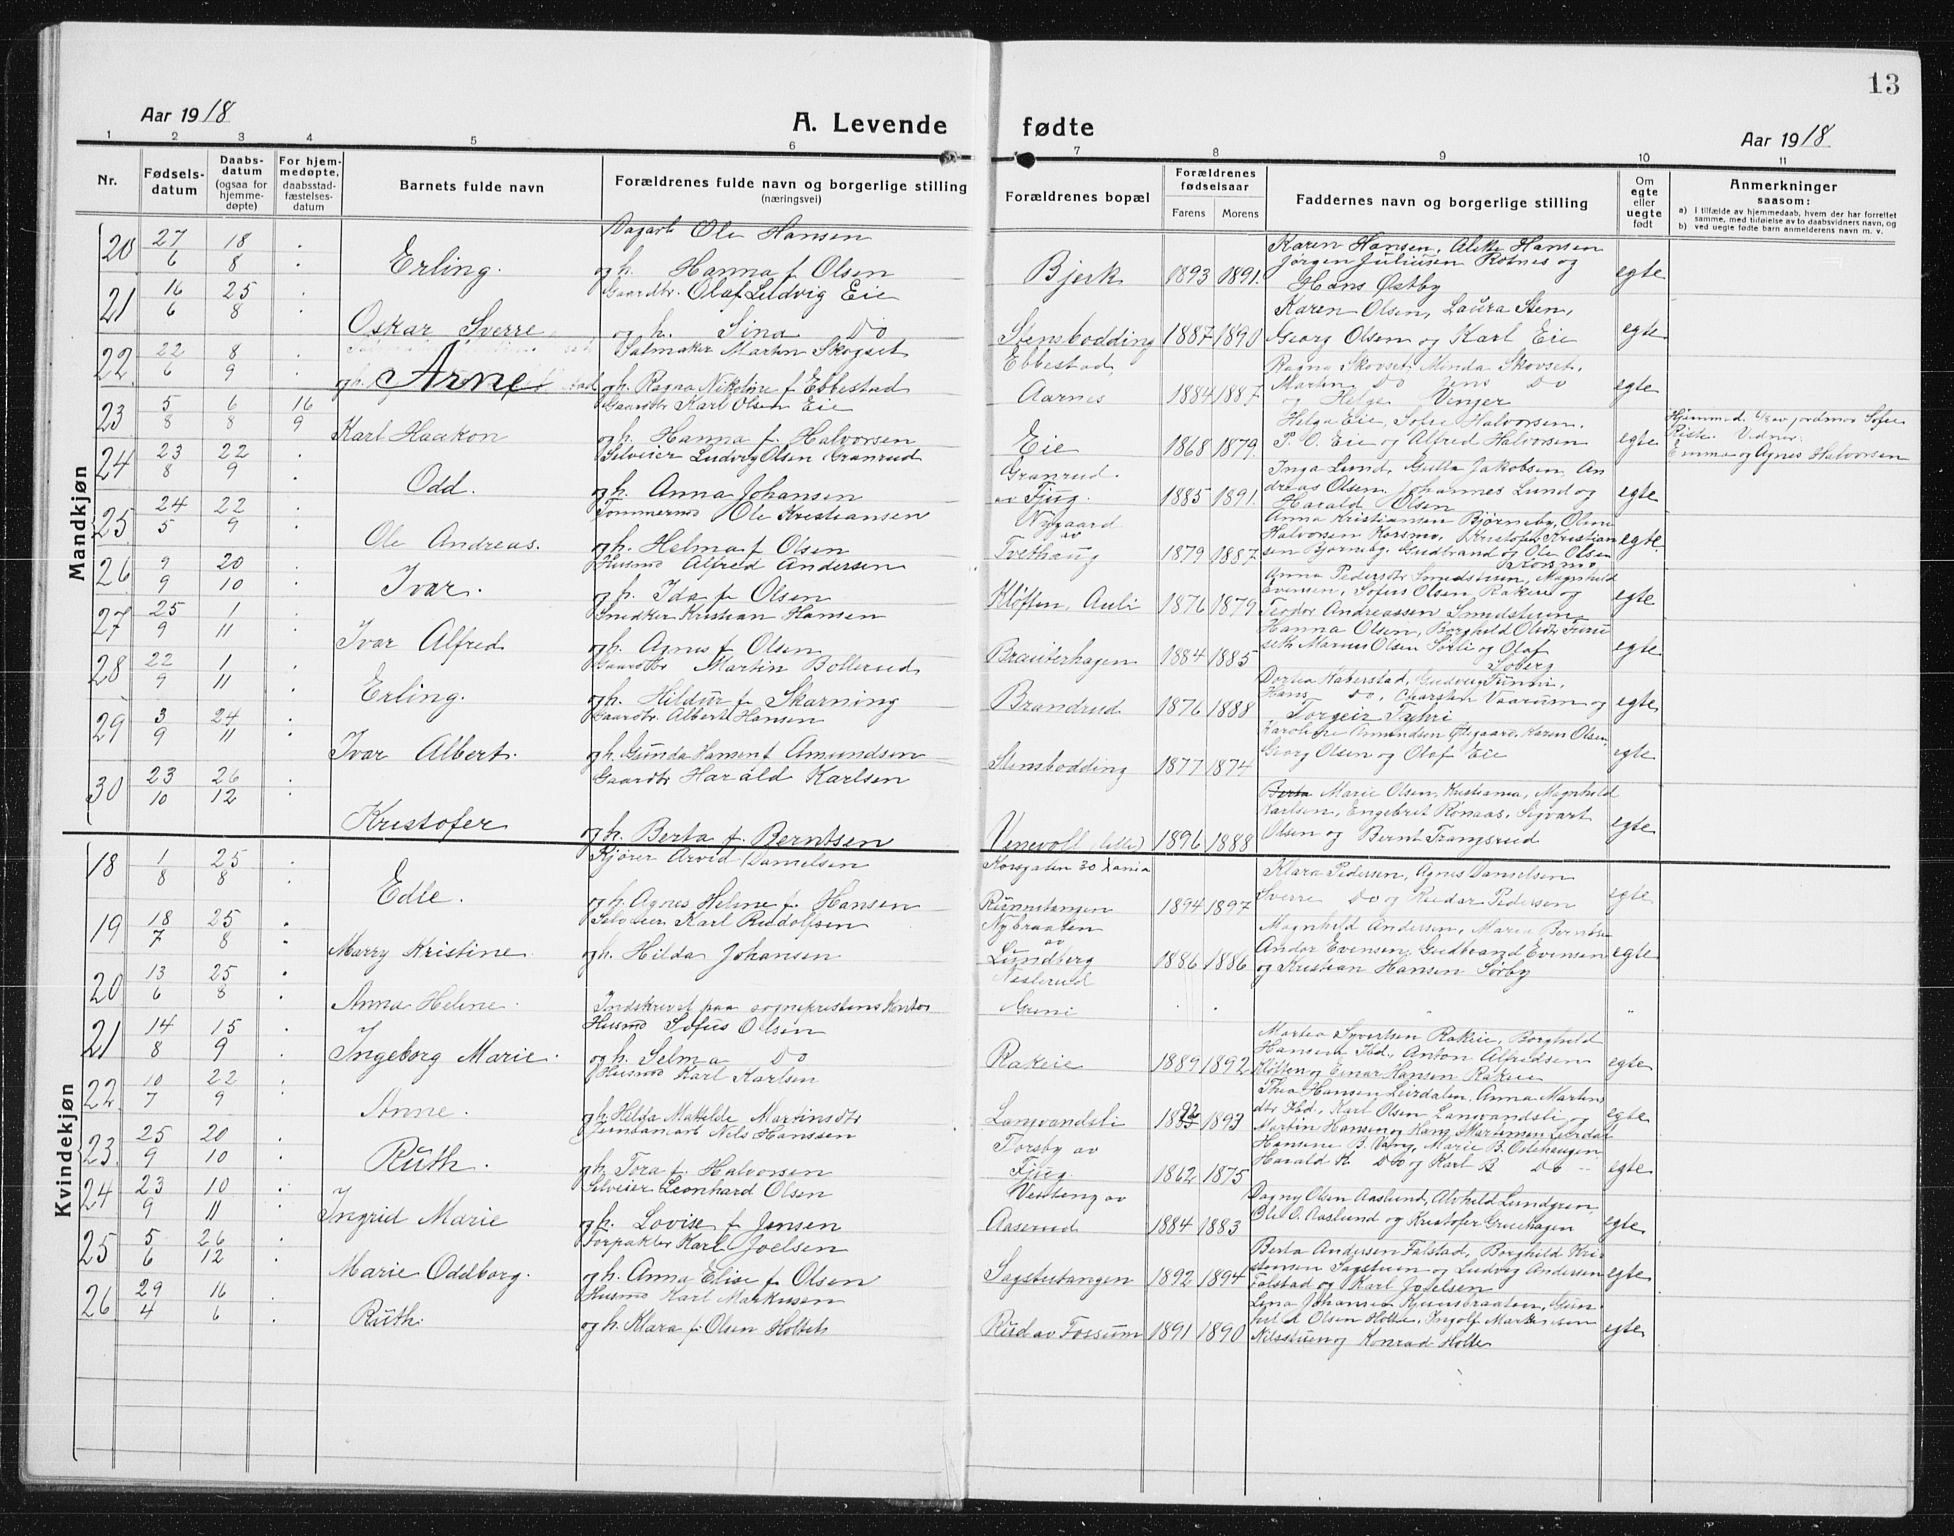 13
Aar 1918
A. Levende fødte
Aar 1918
1 2 3 4 5 6 7 8 9 10 11
Nr.
Fødsels-
datum
Daabs-
datum
(ogsaa for
hjemme-
døpte)
For hjem-
medøpte,
daabsstad-
fæstelses-
datum
Barnets fulde navn
Forældrenes fulde navn og borgerlige stilling
(næringsvei)
Forældrenes bopæl
Forældrenes
fødselsaar
Farens Morens
Faddernes navn og borgerlige stilling
Om
egte
eller
uegte
født
Anmerkninger
saasom:
a) i tilfælde av hjemmedaab, hvem der har forrettet
samme, med tilføielse av to daabsvidners navn, og
b) ved uegte fødte barn anmelderens navn m. v.
Mandkjøn
20 27/6 18/8 Erling.
Dagarb Ole Hansen
og h. Hanna f Olsen
Bjerk 1893 1891.
Karen Hansen, Hansen
Jørgen Juliusen Rotnes og
Hans Østby
egte
21 16/6 25/8 Oskar Sverre
Gaardbr. Olaf Ludvig Eie
og h. Sina Do
Stensbodding 1887 1890
Karen Olsen, Laura Sten,
Georg Olsen og Karl Eie
egte
22 22/6 8/9 Arne
Salmaker Martin Skogset
og h. Ragna Nikoline f Ebbestad
Ebbestad
Aarnes 1884 1887
Ragna Skovset, Minda Skovset,
Martin Do Jens Do
og Helge Vinjer
egte
23 5/8 6/8 16/9 Karl Haakon
Gaardbr Karl Olsen Eie
og h. Hanna f. Halvorsen
Eie 1868 1879.
Helga Eie, Sofie Halvorsen.
P. O. Eie og Alfred Halvorsen
egte
Hjemmed. jordmor Sofie
Vidner:
Emma og Agnes Halvorsen
24 23/8 22/9 Odd.
Selveier Ludvig Olsen Granrud
og h. Anna Johansen
Granrud.
av Fjug. 1885 1891.
Inga Lund, Gutta Jakobsen, An
dreas Olsen, Johannes Lund og
Harald Olsen
egte
25 24/5 22/9 Ole Andreas.
Tømmermd Ole Kristiansen
og h. Helma f Olsen
Nygaard
av
Tvethaug 1879 1887.
Anna Kristiansen Bjørneby, Oline
Halvorsen Korsmo, Kristofer Kristian
sen Bjørneby, Gudbrand og Ole Olsen
Korsmo
egte.
26 9/9 20/10 Ivar.
Husmd Alfred Andersen
og h. Ida f Olsen
Kløften, Auli 1876 1879
Anna Pedersdtr Smedstuen, Magnhild
Evensen, Sofus Olsen Rakeie og
Teodor Andreassen Smedstuen
egte
27 25/9 1/11 Ivar Alfred
Snedker Kristian Hansen
og h. Agnes f Olsen
Brauterhagen 1884 1885
Hanna Olsen, Borghild Olsdtr Furu
seth Marius Olsen Sørli og Olaf
Soberg
egte
28 22/9 1/11 Erling.
Gaardbr Martin Bollerud
og h. Hildur f Skarning
Brandrud 1876 1888
Dortea Haberstad, Gudveig Funni,
Hans Do, Charsten Vaarum og
Torgeir Fyhri
egte,
29 3/9 24/11 Ivar Albert.
Gaardbr. Albert Hansen
og h. Gunda Hansen f Amundsen
Stensbodding 1877 1874
Karoline Amundsen Østgaard, Karen Olsen,
Georg Olsen og Olaf Eie
egte
30 23/10 26/12 Kristofer
Gaardbr Harald Karlsen
og h. Berta f. Berntsen
Venevoll (lille) 1896 1888
Berta Marie Olsen, Kristiania, Magnhild
Karlsen, Engebret Rønaas, Sigvart
Olsen og Bernt Trangsrud
egte
Kvindekjøn
18 1/8 25/8 Edle.
Kjører Arvid Danielsen
og h. Agnes Helene f. Hansen
Korsgaten 30 Xania
Runnetangen 1894 1897
Klara Pedersen, Agnes Danielsen
Sverre Do og Reidar Pedersen
egte
19 18/7 25/8 Marry Kristine
Selveier Karl Rudolfsen
og h. Hilda Johansen
Nybraaten
av
Lundberg 1886 1886
Magnhild Andersen, Maria Bernts
Andor Evensen, Gudbrand Evensen
og Kristian Hansen Sørby
egte
20 13/6 25/8 Anna Helene.
Indskrevet paa sogneprestens kontor
Neslerud
Greni
21 14/8 15/9 Ingeborg Marie.
Husmd Sofus Olsen
og h. Selma Do
Rakeie 1889 1892
Martea Syvertsen Rakeie, Borghild
Hansen Ibd., Anton Alfredsen
Kløften og Einar Hansen Rakeie
egte
22 10/7 22/9 Anne.
Husmd Karl Karlsen
og h. Hilda Matilde Martinsdtr
Langvandsli 1892 1893
Thea Hansen Leirdalen, Anna Martins
dtr Ibd., Karl Olsen Langvandsli og
Martin Hansen og Hans Martinsen Leirdal
egte
23 25/9 20/10 Ruth.
Jernbanearb Nils Hanssen
og h. Tora f. Halvorsen
Torsby av
Fjug 1862 1875
Hansine B. Vang, Marie B. Ostehaugen
Harald K Do og Karl B Do
egte
24 23/9 10/11 Ingrid Marie
Selveier Leonhard Olsen
og h. Lovise f Jensen
Venteng av
Aaserud 1884 1883
Dagny Olsen Aaslund, Alvhild Lundgren,
Ole O. Aaslund og Kristofer Gruehagen
egte
25 5/6 26/12 Marie Oddborg.
Forpakter Karl Joelsen
og h. Anna Elise f Olsen
Sagstutangen 1892 1894
Berta Andersen Falstad, Borghild Kri-
stensen Sagstuen og Ludvig Andersen
Falstad og Karl Joelsen
egte
26 29/4 16/6 Ruth.
Husmd Karl Markusen
og h. Klara f. Olsen Holtets
Rud av Fossum 1891 1890
Lina Johansen Kjensbraaten, Gun-
hild Olsen Holte, Ingolf Markusen
Nilsstuen og Konrad Holte
egte